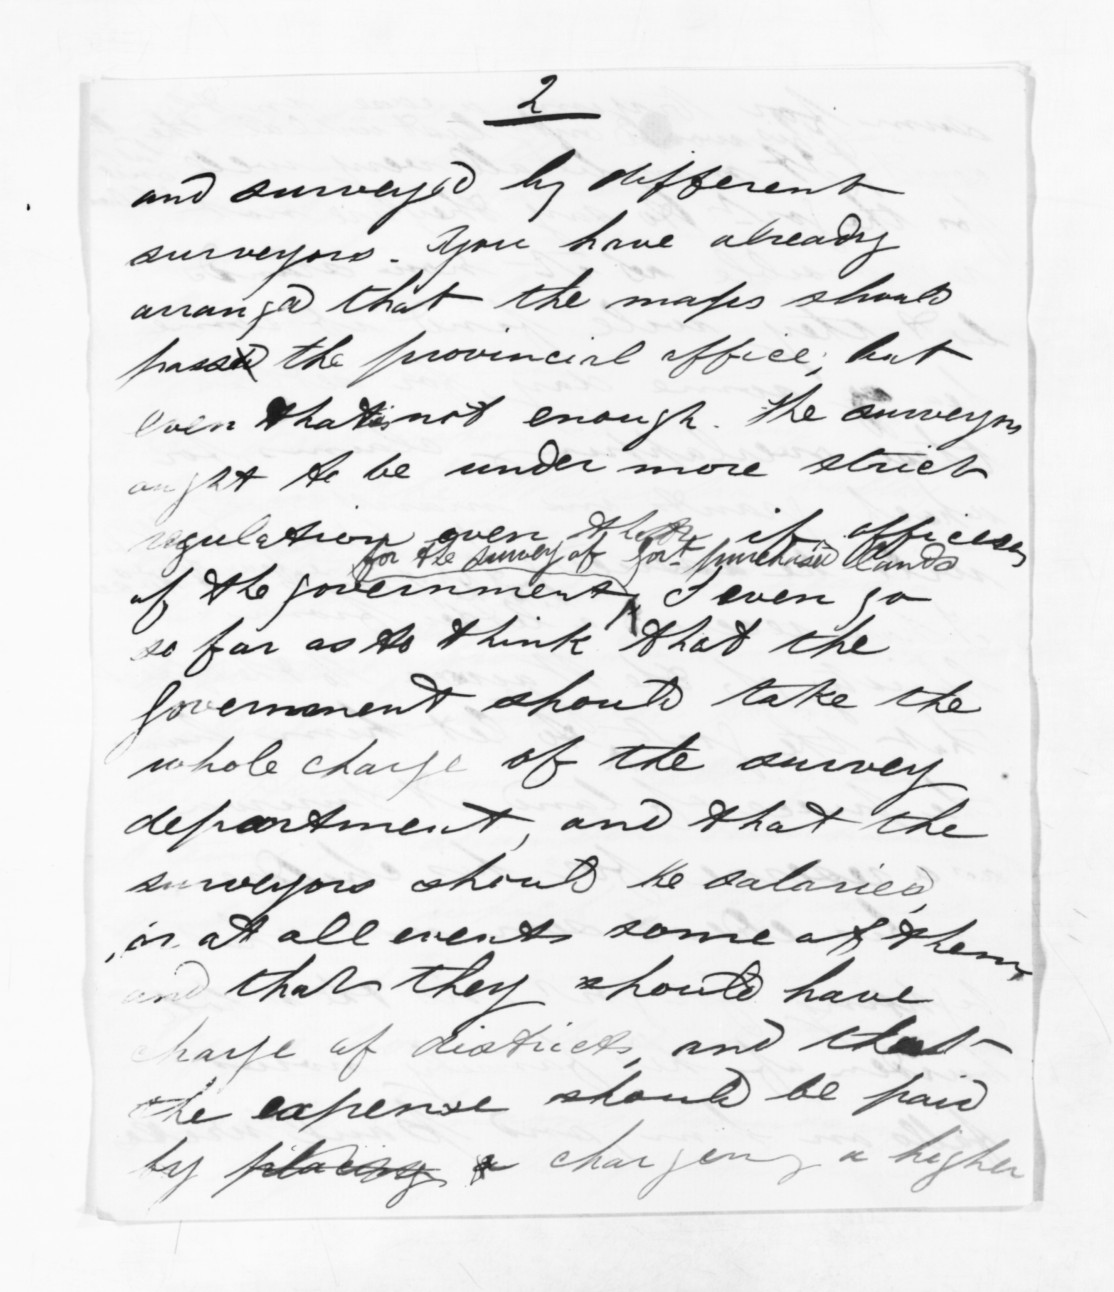 2
and surveyed by different
surveyors. You have already
arranged that the maps should
pass the provincial office; but
even that is not enough. The surveyors
ought to be under more strict
regulation even than if officers
for the survey of Gort. purchased lands
of the government, I even go
so far as to think that the
Government should take the
whole charge of the survey
department, and that the
surveyors should be salaried,
or at all events some of them,
and that they should have
charge of districts, and that
the expense should be paid
by placing a charging a higher